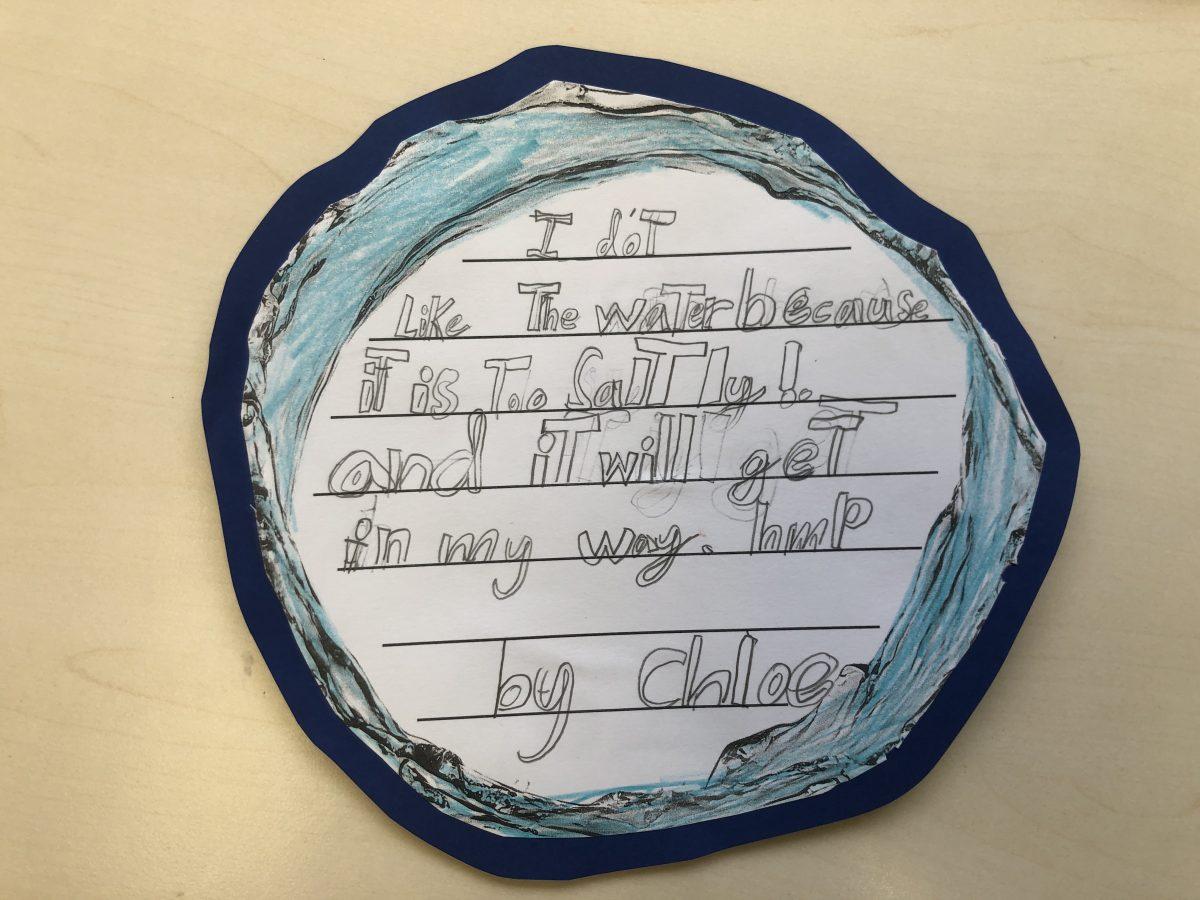 I do'T
Like The waTer because
iT is Too SalTly!.
and iT will geT
in my way. hmP
by Chloe